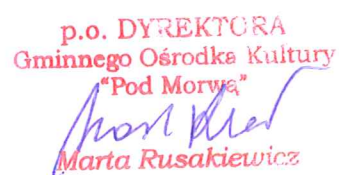 p.o. DYREKTORA
Gminnego Ośrodka Kultury
"Pod Morwą"
Marta Rusakiewicz